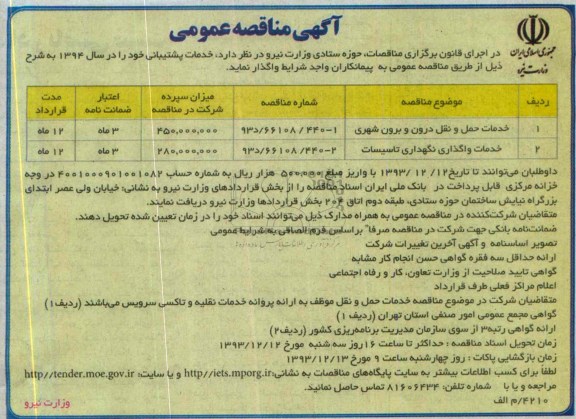 آگهی مناقصه عمومی
جمهوری اسلامی ایران
وزارت نیرو
در اجرای قانون برگزاری مناقصات، حوزه ستادی وزارت نیرو در نظر دارد، خدمات پشتیبانی خود را در سال ۱۳۹۴ به شرح
ذیل از طریق مناقصه عمومی به پیمانکاران واجد شرایط واگذار نماید.
ردیف موضوع مناقصه شماره مناقصه میزان سپرده شرکت در مناقصه اعتبار ضمانت نامه مدت قرارداد
۱ خدمات حمل و نقل درون و برون شهری ۴۴۰-۱ / ۶۶۱۰۸/د۹۳ ۴۵۰,۰۰۰,۰۰۰ ۳ ماه ۱۲ ماه
۲ خدمات واگذاری نگهداری تاسیسات ۴۴۰-۲ / ۶۶۱۰۸/د۹۳ ۲۸۰,۰۰۰,۰۰۰ ۳ ماه ۱۲ ماه
داوطلبان می‌توانند تا تاریخ ۱۲/ ۱۲/ ۱۳۹۳ با واریز مبلغ ۵۰۰,۰۰۰ هزار ریال به شماره حساب ۴۰۰۱۰۰۰۹۰۱۰۰۱۰۸۲ در وجه
خزانه مرکزی قابل پرداخت در بانک ملی ایران اسناد مناقصه را از بخش قراردادهای وزارت نیرو به نشانی: خیابان ولی عصر ابتدای
بزرگراه نیایش ساختمان حوزه ستادی، طبقه دوم اتاق ۲۰۴ بخش قراردادها وزارت نیرو دریافت نمایند.
متقاضیان شرکت‌کننده در مناقصه عمومی به همراه مدارک ذیل می‌توانند اسناد خود را در زمان تعیین شده تحویل دهند.
ضمانت‌نامه بانکی جهت شرکت در مناقصه صرفا" براساس فرم الصاقی به شرایط عمومی
تصویر اساسنامه و آگهی آخرین تغییرات شرکت
ارائه حداقل سه فقره گواهی حسن انجام کار مشابه
گواهی تایید صلاحیت از وزارت تعاون، کار و رفاه اجتماعی
اعلام مراکز فعلی طرف قرارداد
متقاضیان شرکت در موضوع مناقصه خدمات حمل و نقل موظف به ارائه پروانه خدمات نقلیه و تاکسی سرویس می‌باشند (ردیف۱)
گواهی مجمع عمومی امور صنفی استان تهران (ردیف ۱)
ارائه گواهی رتبه۳ از سوی سازمان مدیریت برنامه‌ریزی کشور (ردیف۲)
زمان تحویل اسناد مناقصه : حداکثر تا ساعت ۱۶ روز سه شنبه مورخ ۱۳۹۳/۱۲/۱۲
زمان بازگشایی پاکات : روز چهارشنبه ساعت ۹ مورخ ۱۳۹۳/۱۲/۱۳
لطفا برای کسب اطلاعات بیشتر به سایت پایگاه‌های مناقصات به نشانی:http//iets.mporg.ir و یا سایت: http//tender.moe.gov.ir
مراجعه و یا با شماره تلفن: ۸۱۶۰۶۴۳۴ تماس حاصل نمائید.
۴۲۱۰/م الف
وزارت نیرو